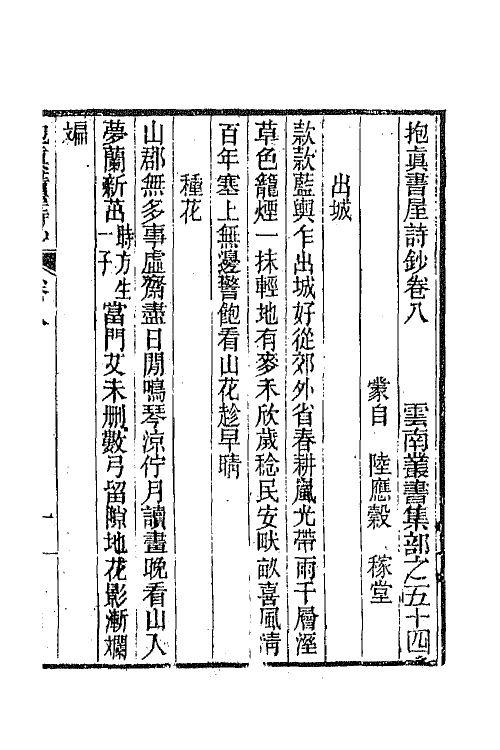 抱眞書屋詩鈔卷八　雲南叢書集部之五十四
蒙自　陸應穀　稼堂
出城
款款藍輿乍出城好從郊外省春耕嵐光帶雨千層溼
草色籠煙一抹輕地有麥禾欣歲稔民安畎畝喜風淸
百年塞上無邊警飽看山花趁早晴
種花
山郡無多事虛齋盡日閒鳴琴涼佇月讀畫晚看山入
夢蘭新茁時方生一子當門艾未刪數弓留隙地花影漸斕
斒
一